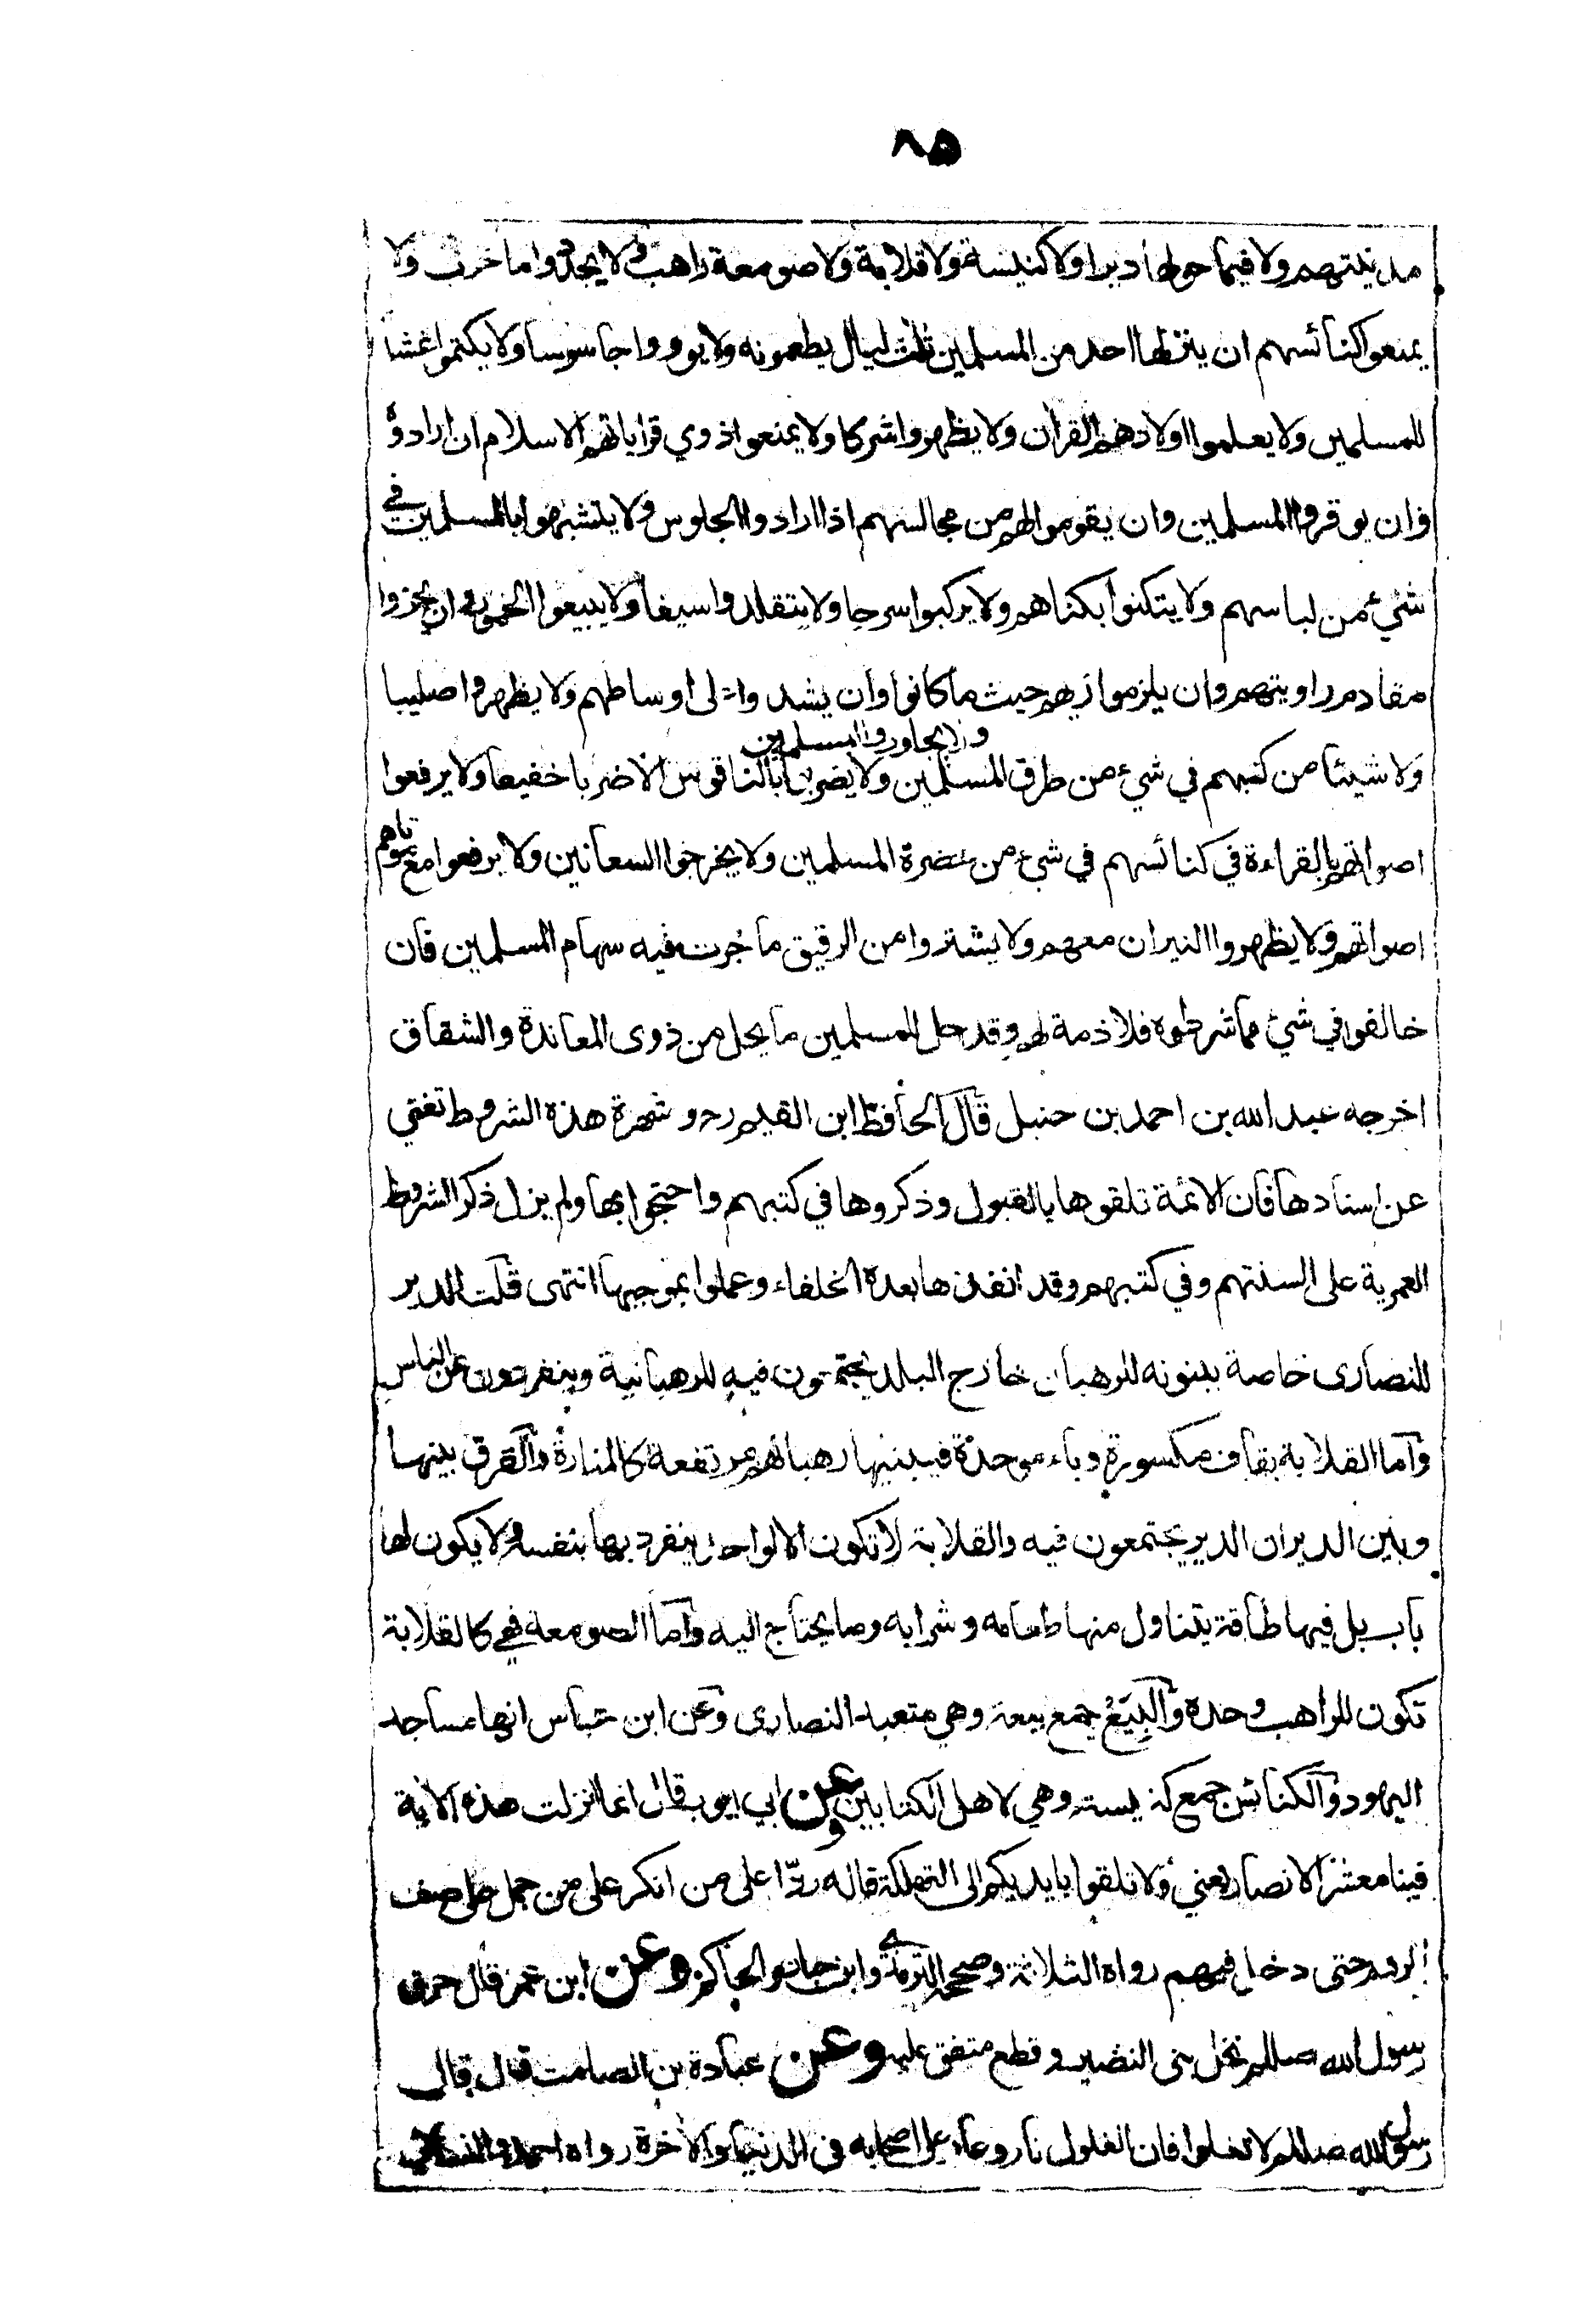 ٨٥
مدينتهم ولا فيما حولها ديرا ولا كنيسة ولا قلابة ولا صومعة راهب ولا يجددوا ما خرب ولا
يمنعوا كنائسهم ان ينزلها احد من المسلمين ثلث ليال يطعمونه ولا يووا جاسوسا ولا يكتموا غشا
للمسلمين ولا يعلموا اولادهم القران ولا يظهروا شركا ولا يمنعوا ذوي قراباتهم الاسلام ان ارادوه
وان يوقروا المسلمين وان يقوموا لهم من مجالسهم اذا ارادوا الجلوس ولا يتشبهوا بالمسلمين في
شيء من لباسهم ولا يتكنوا بكناهم ولا يركبوا سرجا ولا يتقلدوا سيفا ولا يبيعوا الخمور وان يجزوا
مقادم راويتهم وان يلزموا زيهم حيث ما كانوا وان يشدوا على اوساطهم ولا يظهروا صليبا
ولا يجاوروا المسلمين
ولا شيئا من كتبهم في شيء من طرق المسلمين ولا يضربوا بالناقوس الا ضربا خفيفا ولا يرفعوا
اصواتهم بالقراءة في كنائسهم في شيء من حضرة المسلمين ولا يخرجوا السعانين ولا يرفعوا مع موتاهم
اصواتهم ولا يظهروا النيران معهم ولا يشتروا من الرقيق ما جرت فيه سهام المسلمين فان
خالفوا في شيء مما شرطوه فلا ذمة لهم وقد حل للمسلمين ما يحل من ذوى المعاندة والشقاق
اخرجه عبد الله بن احمد بن حنبل قال الحافظ ابن القيم رح وشهرة هذه الشروط تغني
عن اسنادها فان الائمة تلقوها بالقبول وذكروها في كتبهم واحتجوا بها ولم يزل ذكر الشروط
العمرية على السنتهم وفي كتبهم وقد انفذها بعده الخلفاء وعملوا بموجبها انتهى قلت الدير
للنصارى خاصة يبنونه للرهبان خارج البلد يجتمعون فيه للرهبانية وينفردون عن الناس
واما القلابة بقاف مكسورة وباء موحدة فيبنيها رهبانهم مرتفعة كالمنارة والفرق بينها
وبين الدير ان الدير يجتمعون فيه والقلابة لا تكون الا لواحد ينفرد بها بنفسه ولا يكون لها
باب بل فيها طاقة يتناول منها طعامه وشرابه وما يحتاج اليه واما الصومعة فهي كالقلابة
تكون للراهب وحده والبيع جمع بيعة وهي متعبد النصارى وعن ابن عباس انها مساجد
اليهود والكنائس جمع كنيسة وهي لاهل الكتابين وعن ابي ايوب قال انما انزلت هذه الاية
فينا معشر الانصار يعني ولا تلقوا بايديكم الى التهلكة قاله ردّا على من انكر على من حمل على صف
الروم حتى دخل فيهم رواه الثلاثة وصححه الترمذي وابن حبان والحاكم وعن ابن عمر قال حرق
رسول الله صللم نخل بنى النضير وقطع متفق عليه وعن عبادة بن الصامت قال قال
رسول الله صللم لا تغلوا فان الغلول نار وعار على اصحابه في الدنيا والاخرة رواه احمد والنسائي